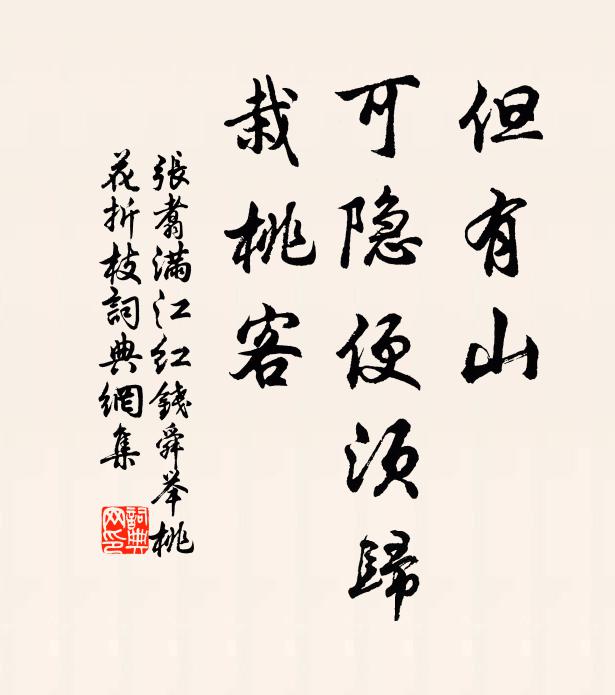 但有山
可隐便须歸
栽桃客
張翥满江红錢舜举桃
花折枝詞典網集
詞典
网印